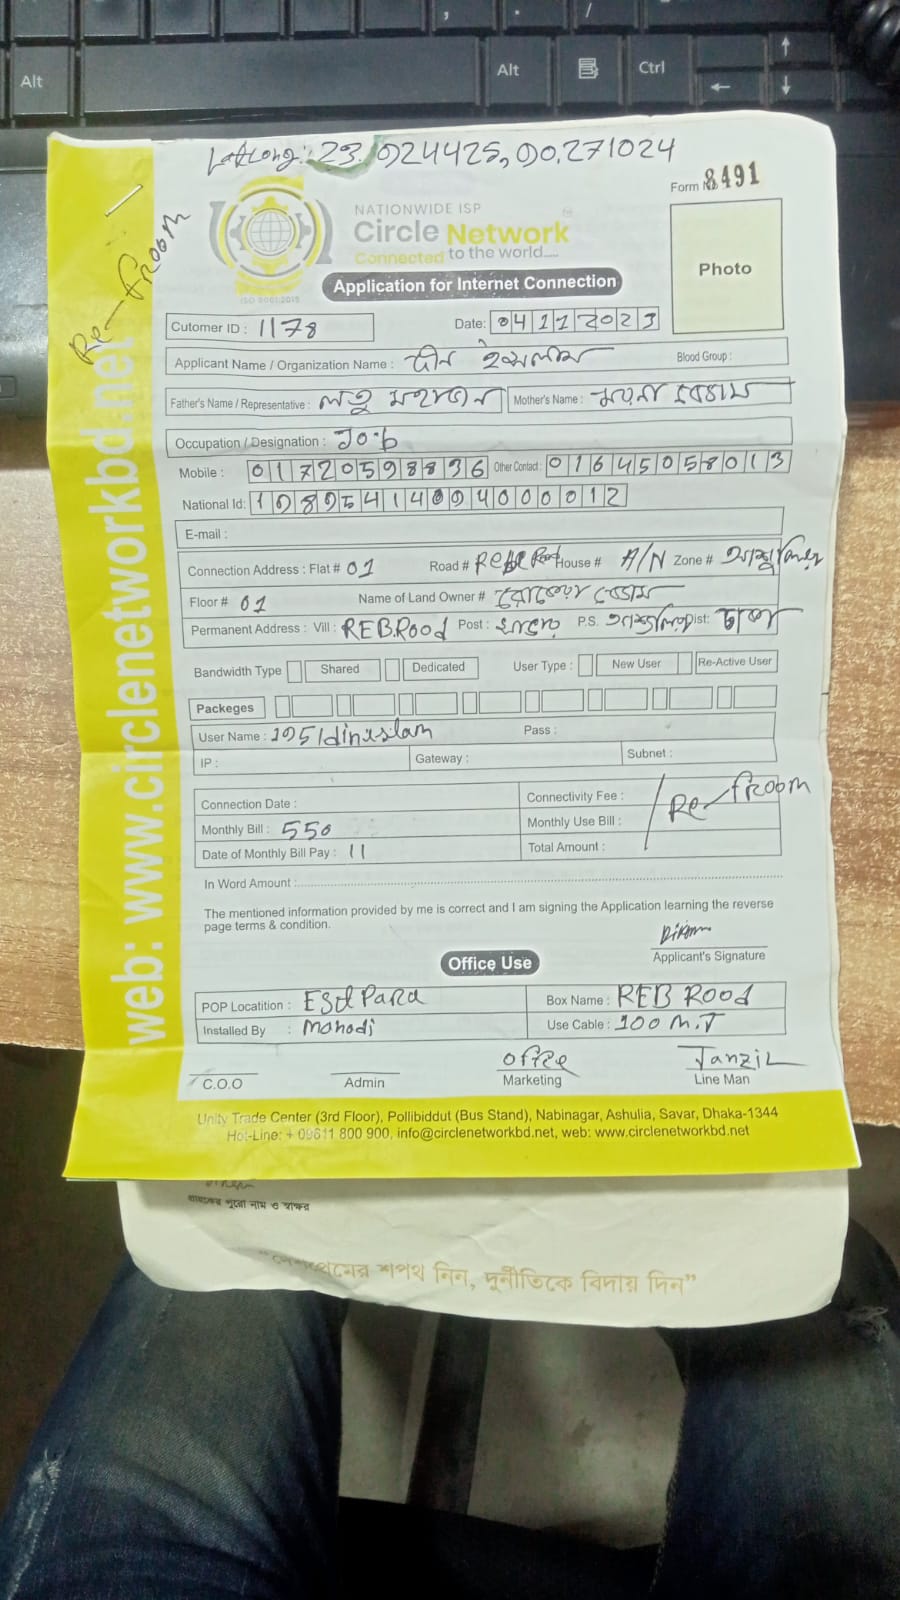 Alt Alt Ctrl
LatLong: 23.924425, 90.271024
Form No 8491
NATIONWIDE ISP
Circle Network
Connected to the world....
ISO 9001:2015
Application for Internet Connection
Photo
Re-froom
web: www.circlenetworkbd.net
Cutomer ID : 1178 Date: 04112023
Applicant Name / Organization Name : দীন ইসলাম Blood Group :
Father's Name / Representative : লতু মহাজন Mother's Name : ময়না বেগম
Occupation / Designation : Job
Mobile : 01720598836 Other Contact : 01645058013
National Id: 19895414094000012
E-mail :
Connection Address : Flat # 01 Road # House # A/N Zone # আশুলিয়া
Floor # 01 Name of Land Owner # বেগম
Permanent Address : Vill : REB.Rood Post : P.S. আশুলিয়া Dist: ঢাকা
Bandwidth Type Shared Dedicated User Type : New User Re-Active User
Packeges
User Name : 1951dinislam Pass :
IP : Gateway : Subnet :
Connection Date : Connectivity Fee :
Monthly Bill : 550 Monthly Use Bill : Re-froom
Date of Monthly Bill Pay : 11 Total Amount :
In Word Amount :
The mentioned information provided by me is correct and I am signing the Application learning the reverse
page terms & condition.
Applicant's Signature
Office Use
POP Locatition : Esd Para Box Name : REB Rood
Installed By : Mahadi Use Cable : 100 M.T
office Tanzil
C.O.O Admin Marketing Line Man
Unity Trade Center (3rd Floor), Pollibiddut (Bus Stand), Nabinagar, Ashulia, Savar, Dhaka-1344
Hot-Line: + 09611 800 900, info@circlenetworkbd.net, web: www.circlenetworkbd.net
গ্রাহকের পুরো নাম ও স্বাক্ষর
"দেশপ্রেমের শপথ নিন, দুর্নীতিকে বিদায় দিন"